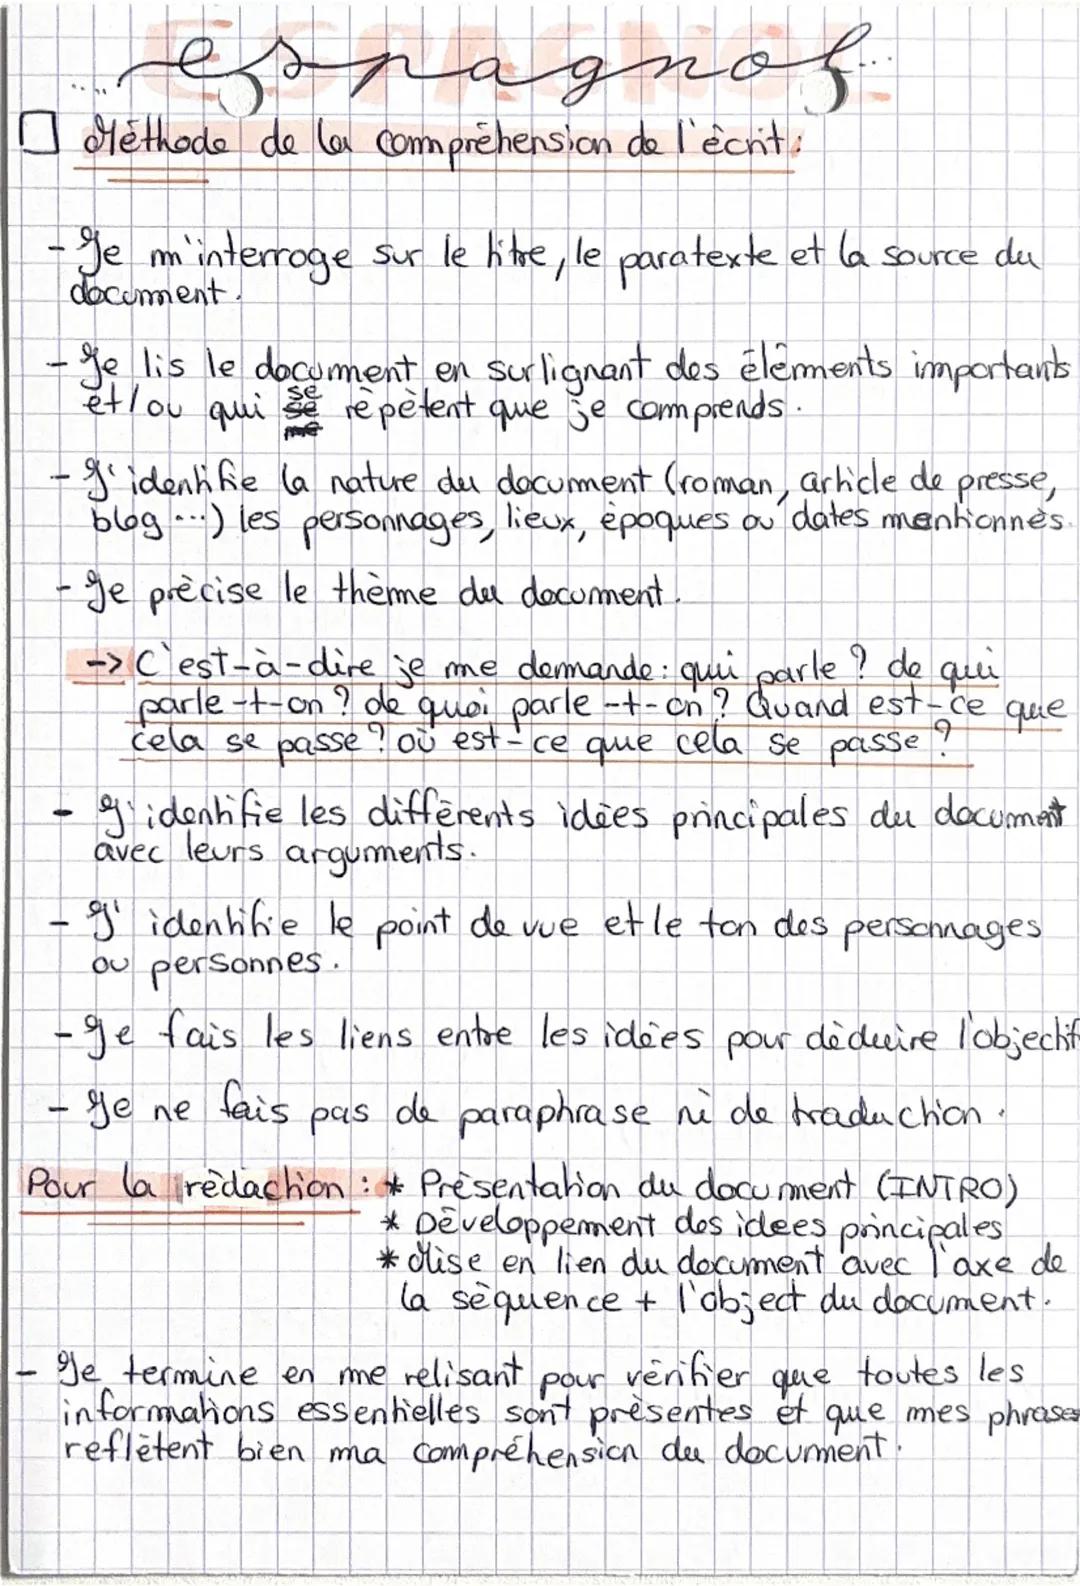 ESPAGNOL
espagnol
Méthode de la compréhension de l'écrit :
- Je m'interroge sur le titre, le paratexte et la source du
document.
- Je lis le document en surlignant des éléments importants
et/ou qui se répètent que je comprends.
- J'identifie la nature du document (roman, article de presse,
blog ...) les personnages, lieux, époques ou dates mentionnés.
- Je précise le thème du document.
-> C'est-à-dire je me demande : qui parle ? de qui
parle-t-on ? de quoi parle-t-on ? Quand est-ce que
cela se passe ? où est-ce que cela se passe ?
- J'identifie les différents idées principales du document
avec leurs arguments.
- J'identifie le point de vue et le ton des personnages
ou personnes.
- Je fais les liens entre les idées pour déduire l'objectif
- Je ne fais pas de paraphrase ni de traduction.
Pour la rédaction : * Présentation du document (INTRO)
* Développement des idées principales
* Mise en lien du document avec l'axe de
la séquence + l'object du document.
- Je termine en me relisant pour vérifier que toutes les
informations essentielles sont présentes et que mes phrases
reflètent bien ma compréhension du document.